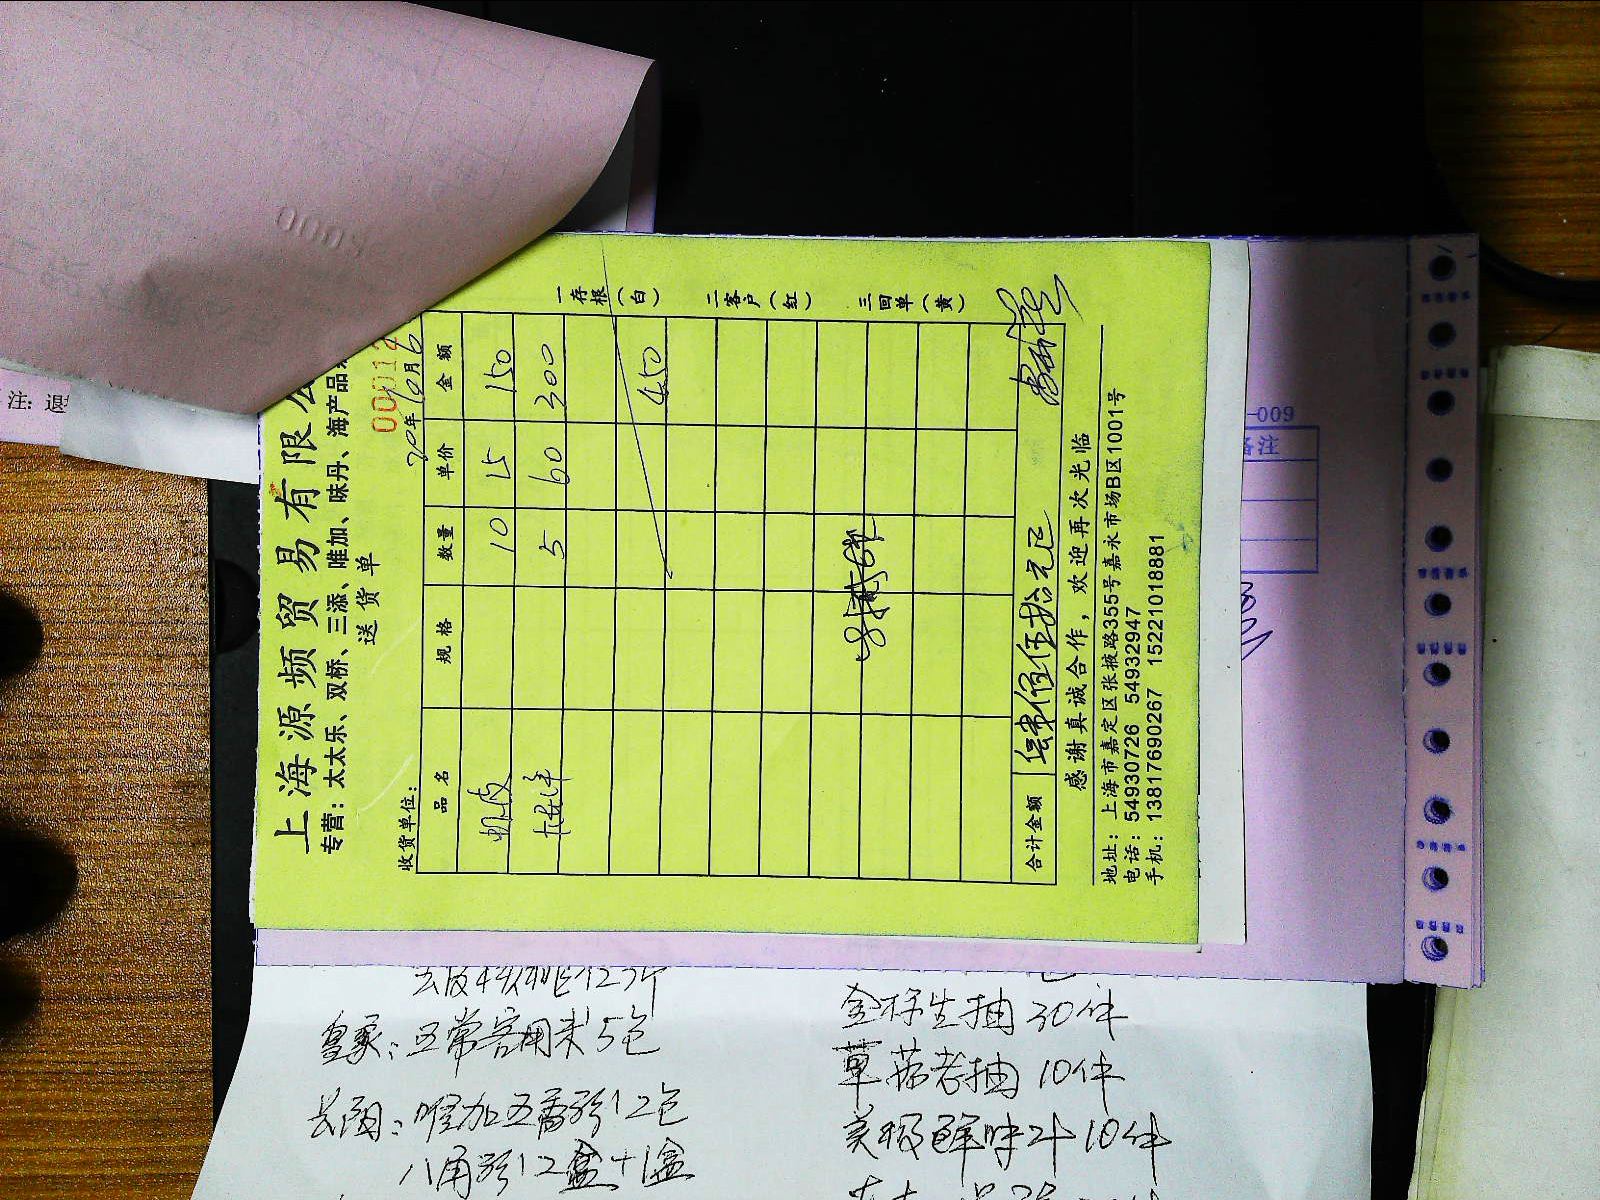 上海源频贸易有限公
专营：太太乐、双桥、三添、唯加、味丹、海产品
送货单
00012
收货单位：
20年10月6
品名 规格 数量 单价 金额
10 15 150
5 60 300
450
合计金额 肆佰伍拾元正
一存根（白）
二客户（红）
三回单（黄）
感谢真诚合作，欢迎再次光临
地址：上海市嘉定区张掖路355号嘉永市场B区1001号
电话：54930726 54932947
手机：13817690267 15221018881
注：退
0008
-009
备注
皇家：五常客用米5包
唯加五香粉12包
八角粉12盒+1盒
金标生抽 30件
草菇老抽 10件
美极鲜味汁10件